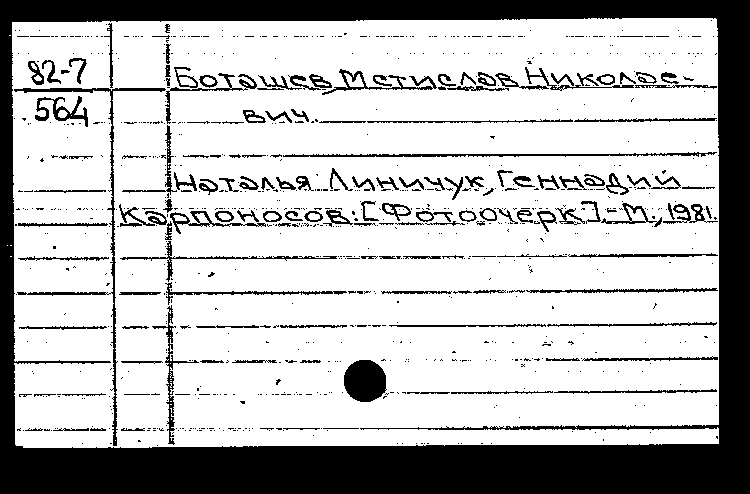 82-7
564
Боташев Мстислав Николае-
вич.
Наталья Линичук, Геннадий
Карпоносов: [Фотоочерк]. - М., 1981.